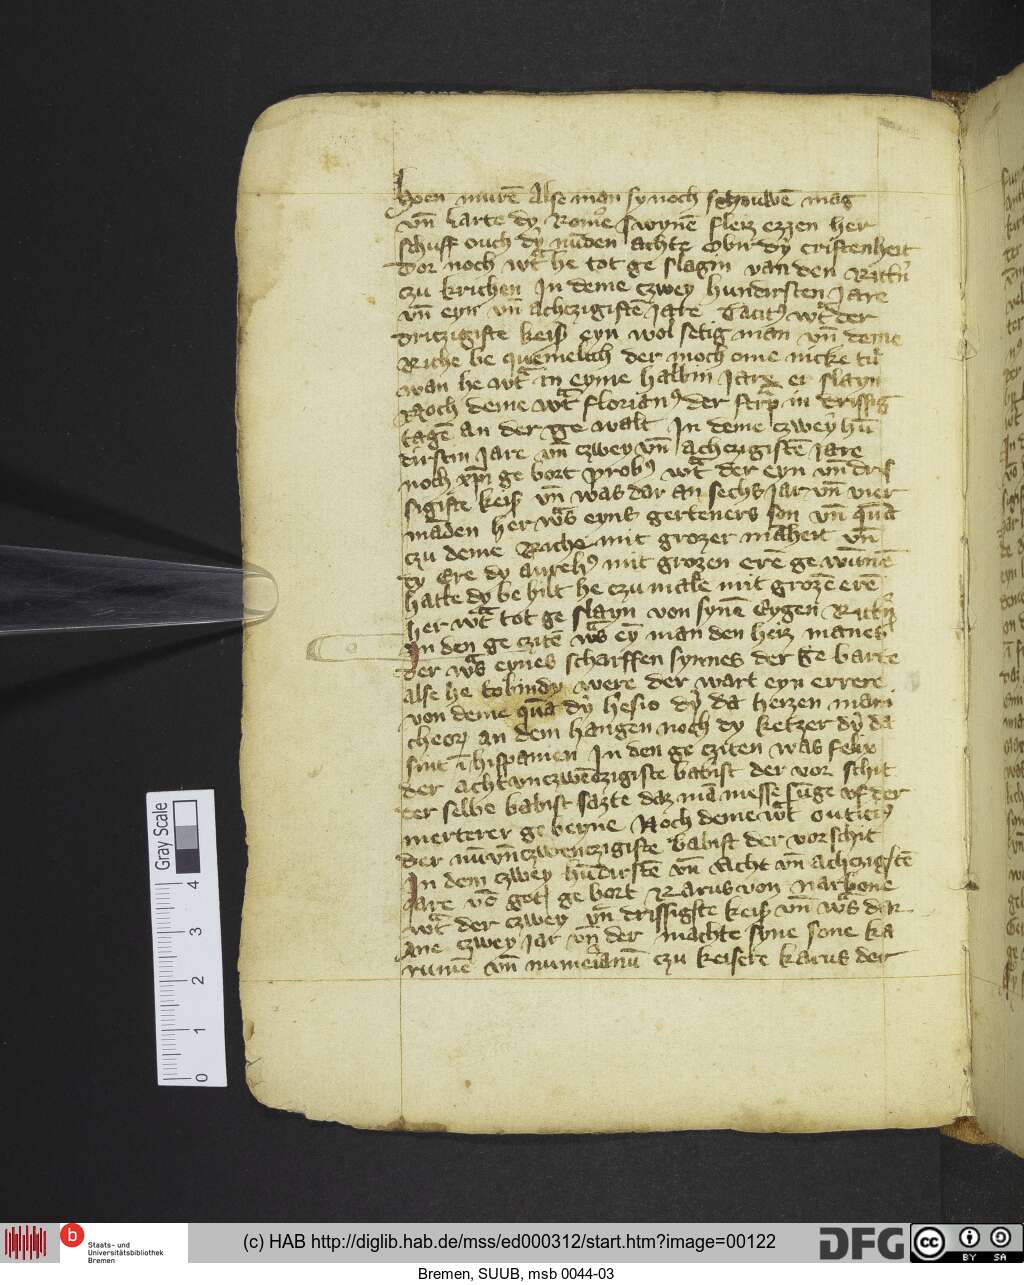 hoen murē Alse man sy noch schouwē mag
vn̄ larte dy Rome swynē fleiz ezzen her
schuff ouch dy nuden achte obir dy cristenheit
dor noch wt he tot ge slagin van den Rittn̄
czu krichen In deme czwey hundirsten Jare
vn̄ eyn vn̄ achczigistē Jare Tacitꝰ wt der
driczigiste keisß eyn wol setig man vn̄ deme
Riche be quemelich der moch ome nicke tu
wan he wt in eyme halbin Jare er slayn
Noch deme wt florianꝰ der starp in drissig
tagē an der ge walt In deme czwey hū
dirstin Jare vn̄ czwey vn̄ achczigistē Jare
noch xp̄i ge bort probꝰ wt der eyn vn̄ dris
sigiste keisß vn̄ was dar an sechs Jar vn̄ vier
maden her ws eyns gerteners son vn̄ quā
czu deme Riche mit grozer maheit vn̄
dy Ere dy aurelꝰ mit grozen erē ge wunnē
hatte dy be hilt he czu male mit grozē erē
her wt tot ge slayn von synē Eygen Rittn̄
In den ge czitē ws ey man den heiz manes
der ws eynes scharffen synnes der ge barte
Alse he tobindy were der wart eyn errere
von deme quā dy hesio dy da herzen mani
cheorȝ an dem hangen noch dy ketzer dy da
sint ī hispanien In den ge cziten was felix
der acht vnczwēczigiste babist der vor schit
der selbe babist sazte daz mā messe sūge vf der
merterer ge beyne Noch deme wt outiciꝰ
der nūvn̄czwenczigiste babist der vorschit
In dem czwey hūdirstē vn̄ Acht vn̄ achczigstē
Jare vō gotȝ ge bort Karus von Narbone
wt der czwey vn̄ drissigste keisß vn̄ ws dar
Ane czwey Jar vn̄ der machte syne sone ka
rumē vn̄ numerianū czu keisere karus der
Gray Scale
4
3
2
1
0
b
Staats- und
Universitätsbibliothek
Bremen
(c) HAB http://diglib.hab.de/mss/ed000312/start.htm?image=00122
DFG
cc
BY SA
Bremen, SUUB, msb 0044-03